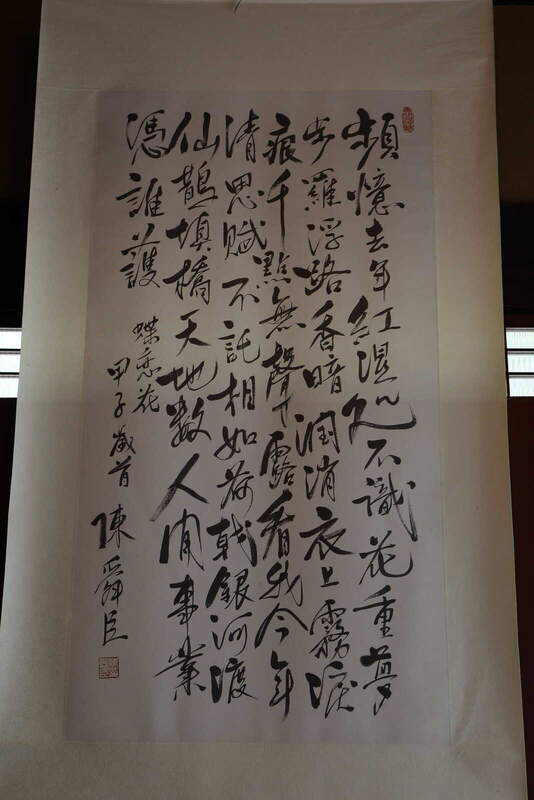 頻憶去年紅濕処不識花重夢
步羅浮路香暗潤消衣上霧淚
痕千點無聲下露看我今年
清思賦不託相如荷戟銀河渡
仙鵲填橋天地数人間事業
憑誰護
蝶恋花
甲子歲首 陳舜臣